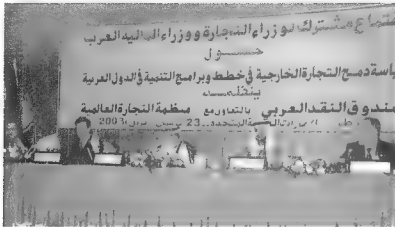 اجتماع مشترك لوزراء التجارة ووزراء المالية العرب
حـــول
سياسة دمج التجارة الخارجية في خطط وبرامج التنمية في الدول العربية
ينظمـــه
صندوق النقد العربي بالتعاون مع منظمة التجارة العالمية
المتحدة 23